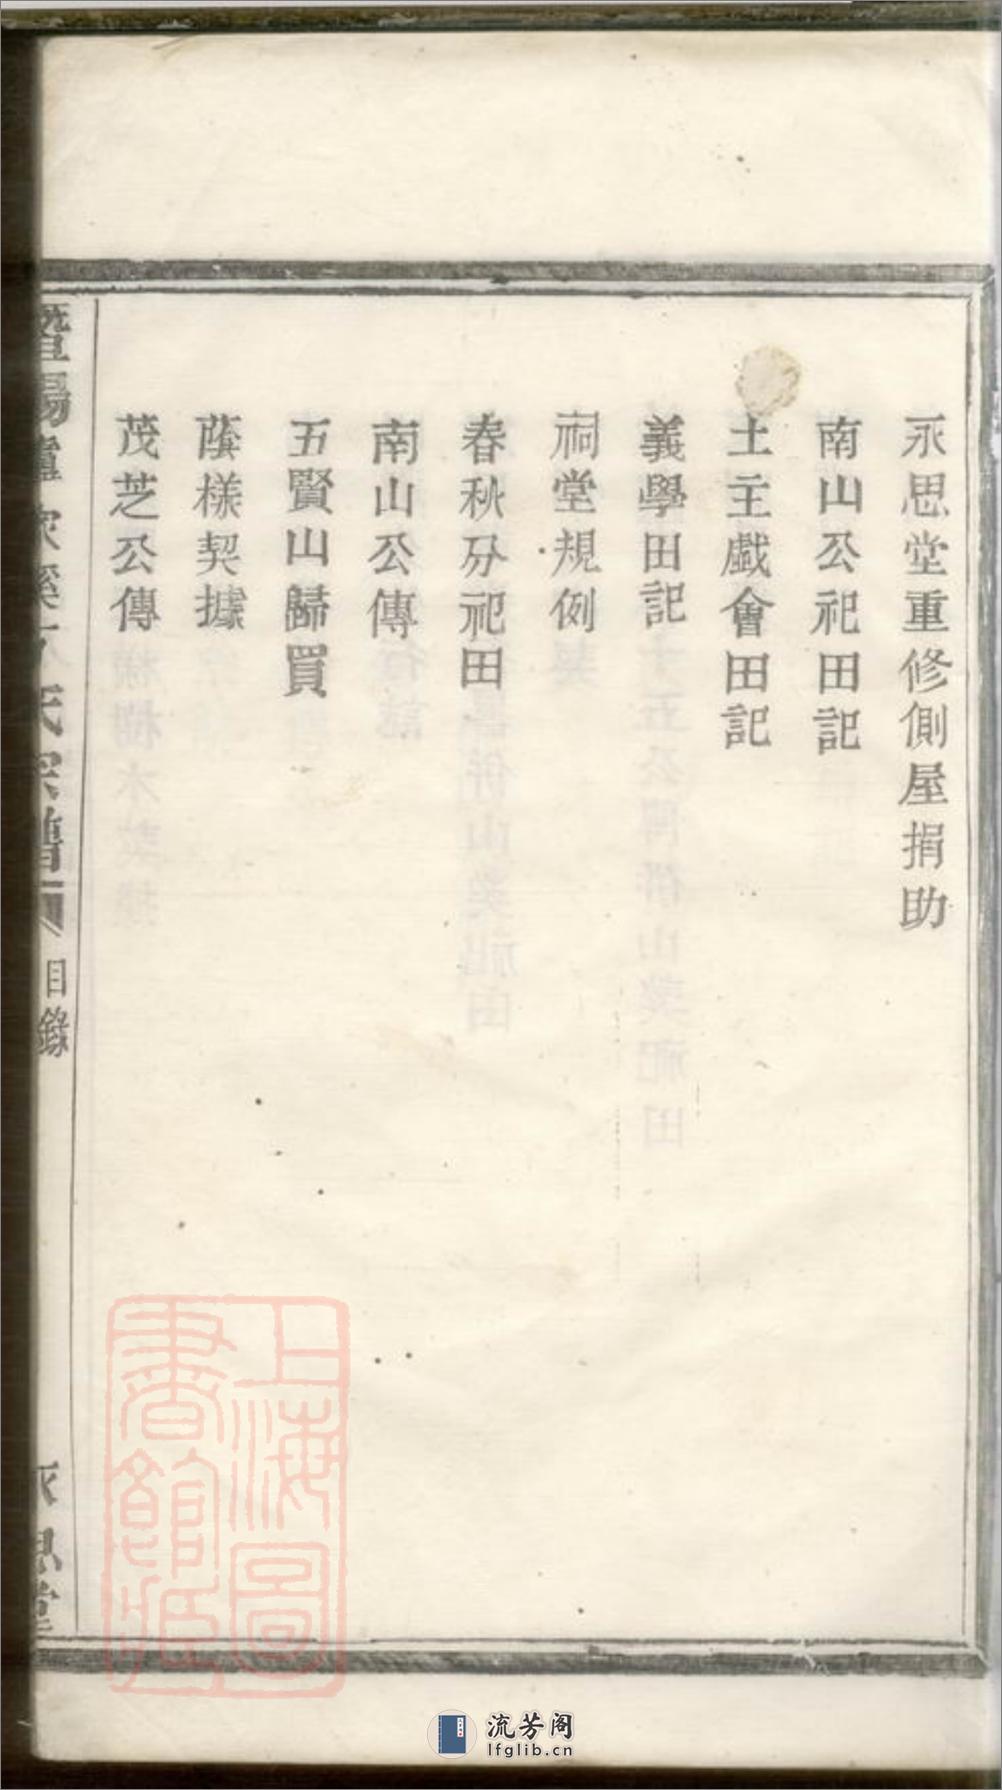 永思堂重修側屋捐助
南山公祀田記
土主戲會田記
義學田記
祠堂規例
春秋分祀田
南山公傳
五賢山歸買
蔭樣契據
茂芝公傳
暨陽
氏宗譜
目錄
永思堂
上海圖書館藏
流芳阁
lfglib.cn